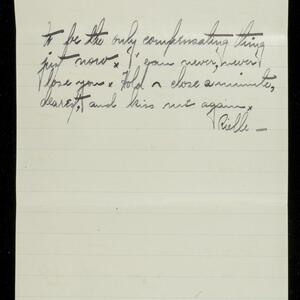 to be the only compensating thing
just now. I can never, never
lose you. Hold me close a minute,
dearest, and kiss me again.
Rielle —